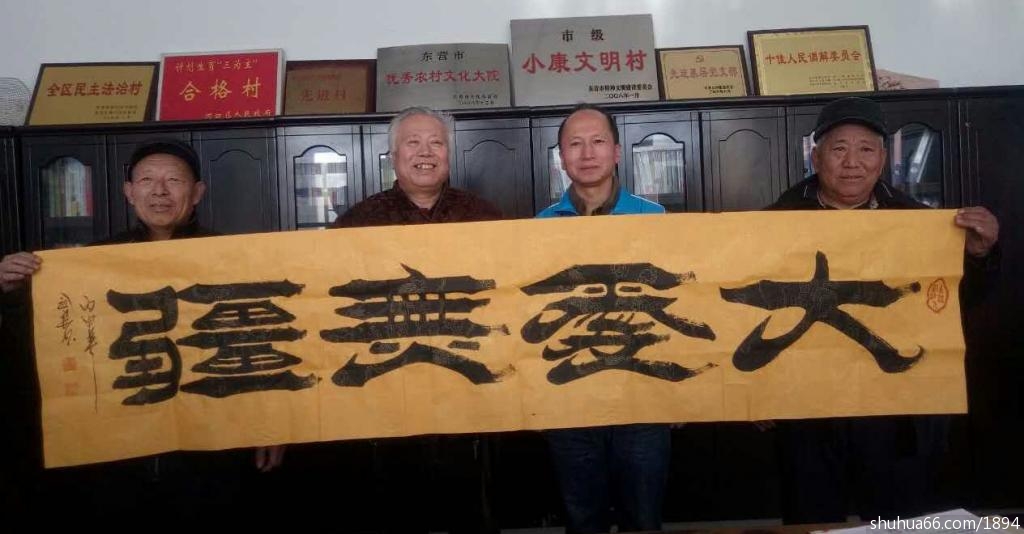 全区民主法治村
计划生育“三为主”
合格村
河口区人民政府
先进村
东营市
优秀农村文化大院
市级
小康文明村
东营市精神文明建设委员会
二〇〇八年一月
先进基层党支部
十佳人民调解委员会
大爱無疆
shuhua66.com/1894